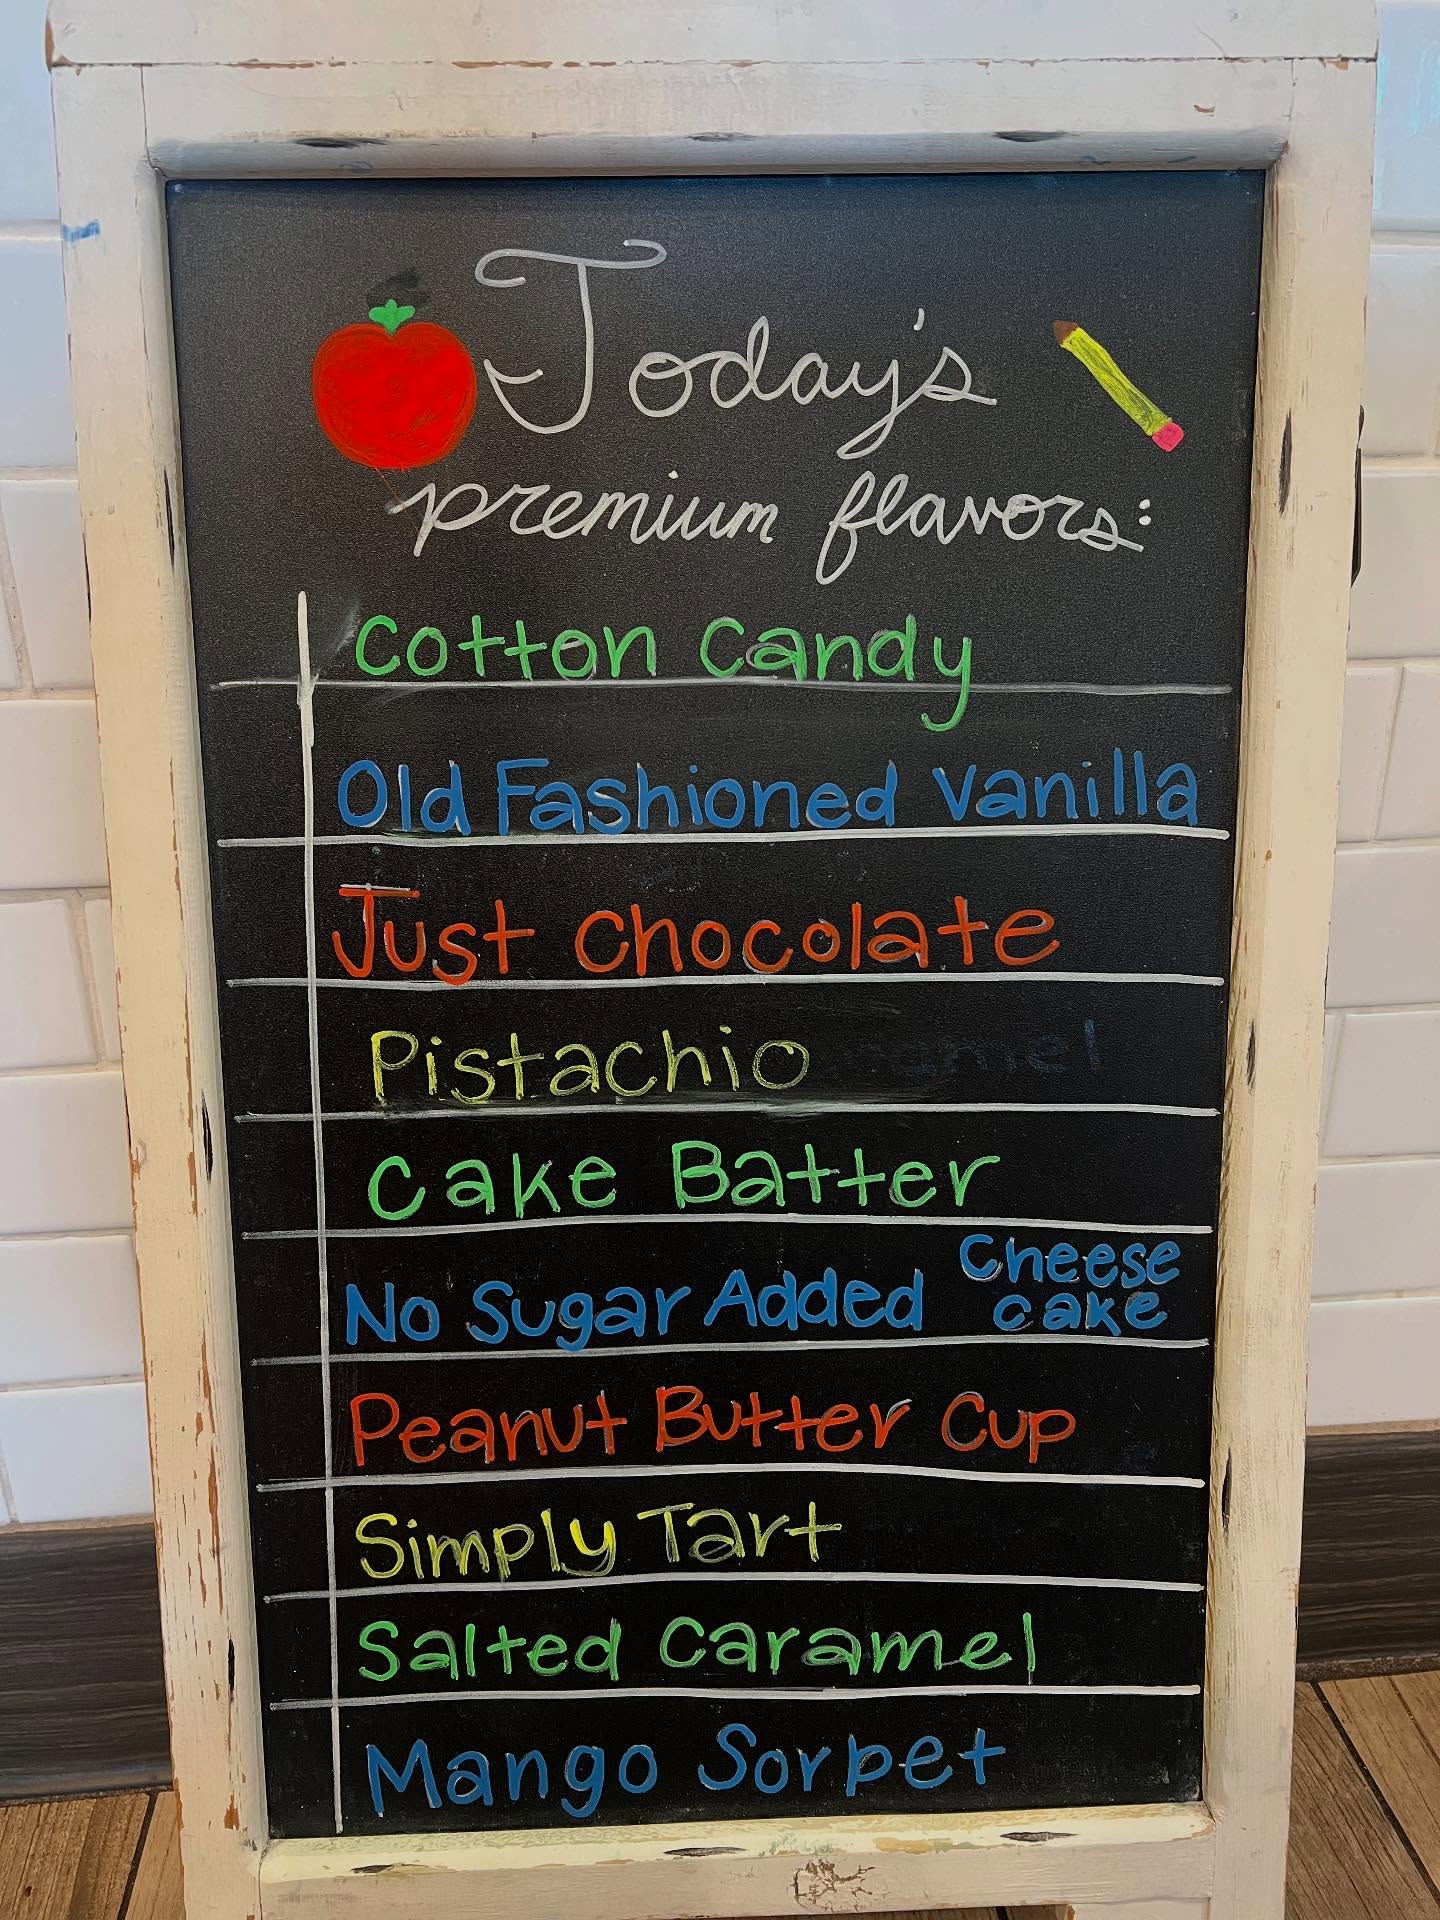 Today's
premium flavors:
Cotton Candy
Old Fashioned Vanilla
Just Chocolate
Pistachio
Cake Batter
No Sugar Added Cheese cake
Peanut Butter Cup
Simply Tart
Salted Caramel
Mango Sorbet